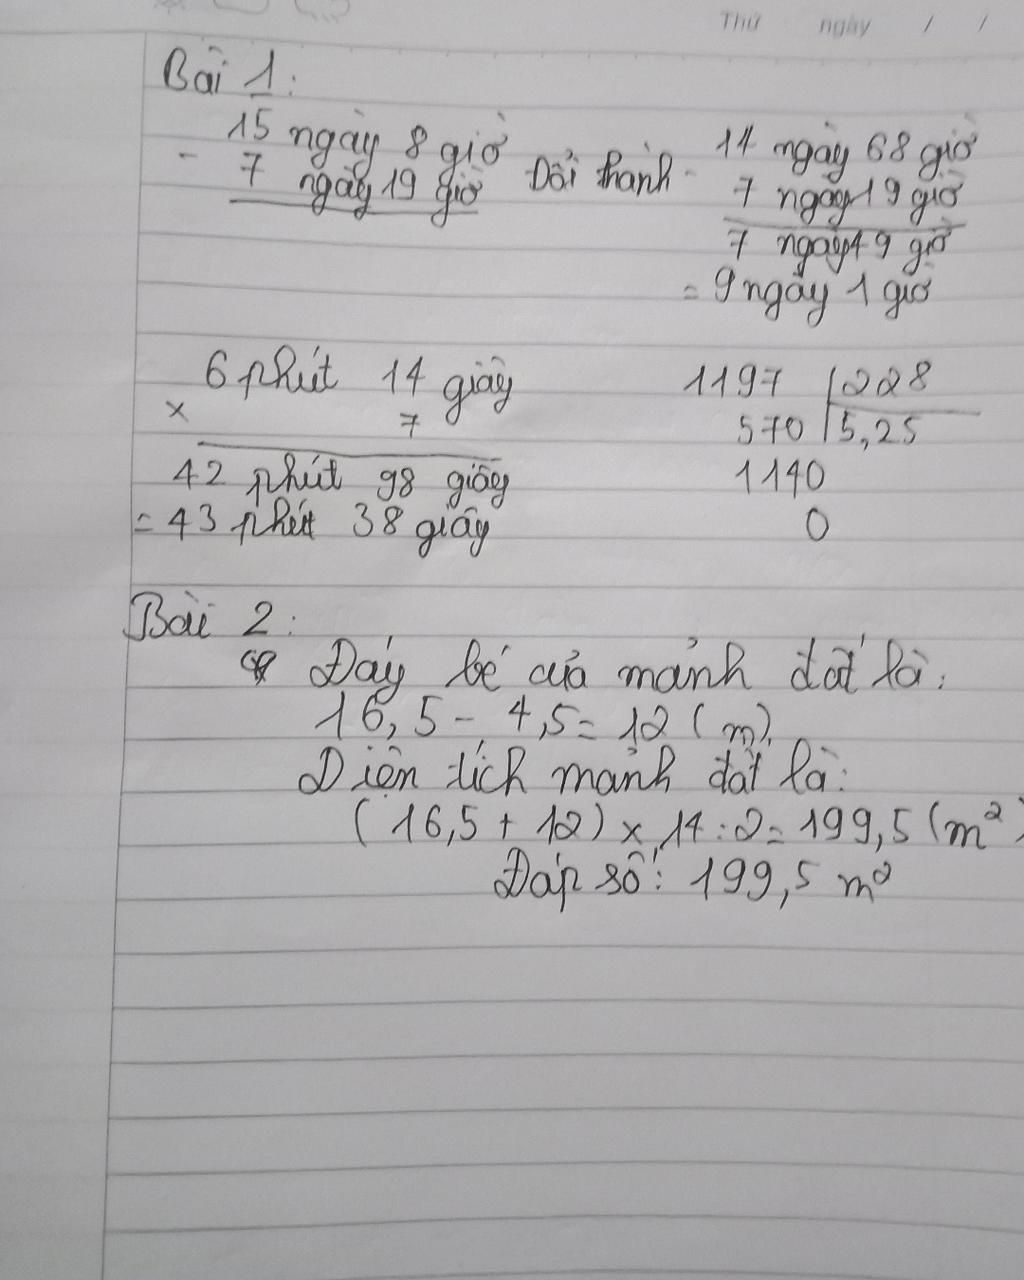 Thứ ngày / /
Bài 1:
15 ngày 8 giờ
- 7 ngày 19 giờ
Đổi thành -
14 ngày 68 giờ
7 ngày 19 giờ
7 ngày 49 giờ
= 9 ngày 1 giờ
6 phút 14 giây
x 7
42 phút 98 giây
= 43 phút 38 giây
1197 228
570 5,25
1140
0
Bài 2:
Đáy bé của mảnh đất là:
16,5 - 4,5 = 12 (m).
Diện tích mảnh đất là:
(16,5 + 12) x 14 : 2 = 199,5 (m²)
Đáp số: 199,5 m²